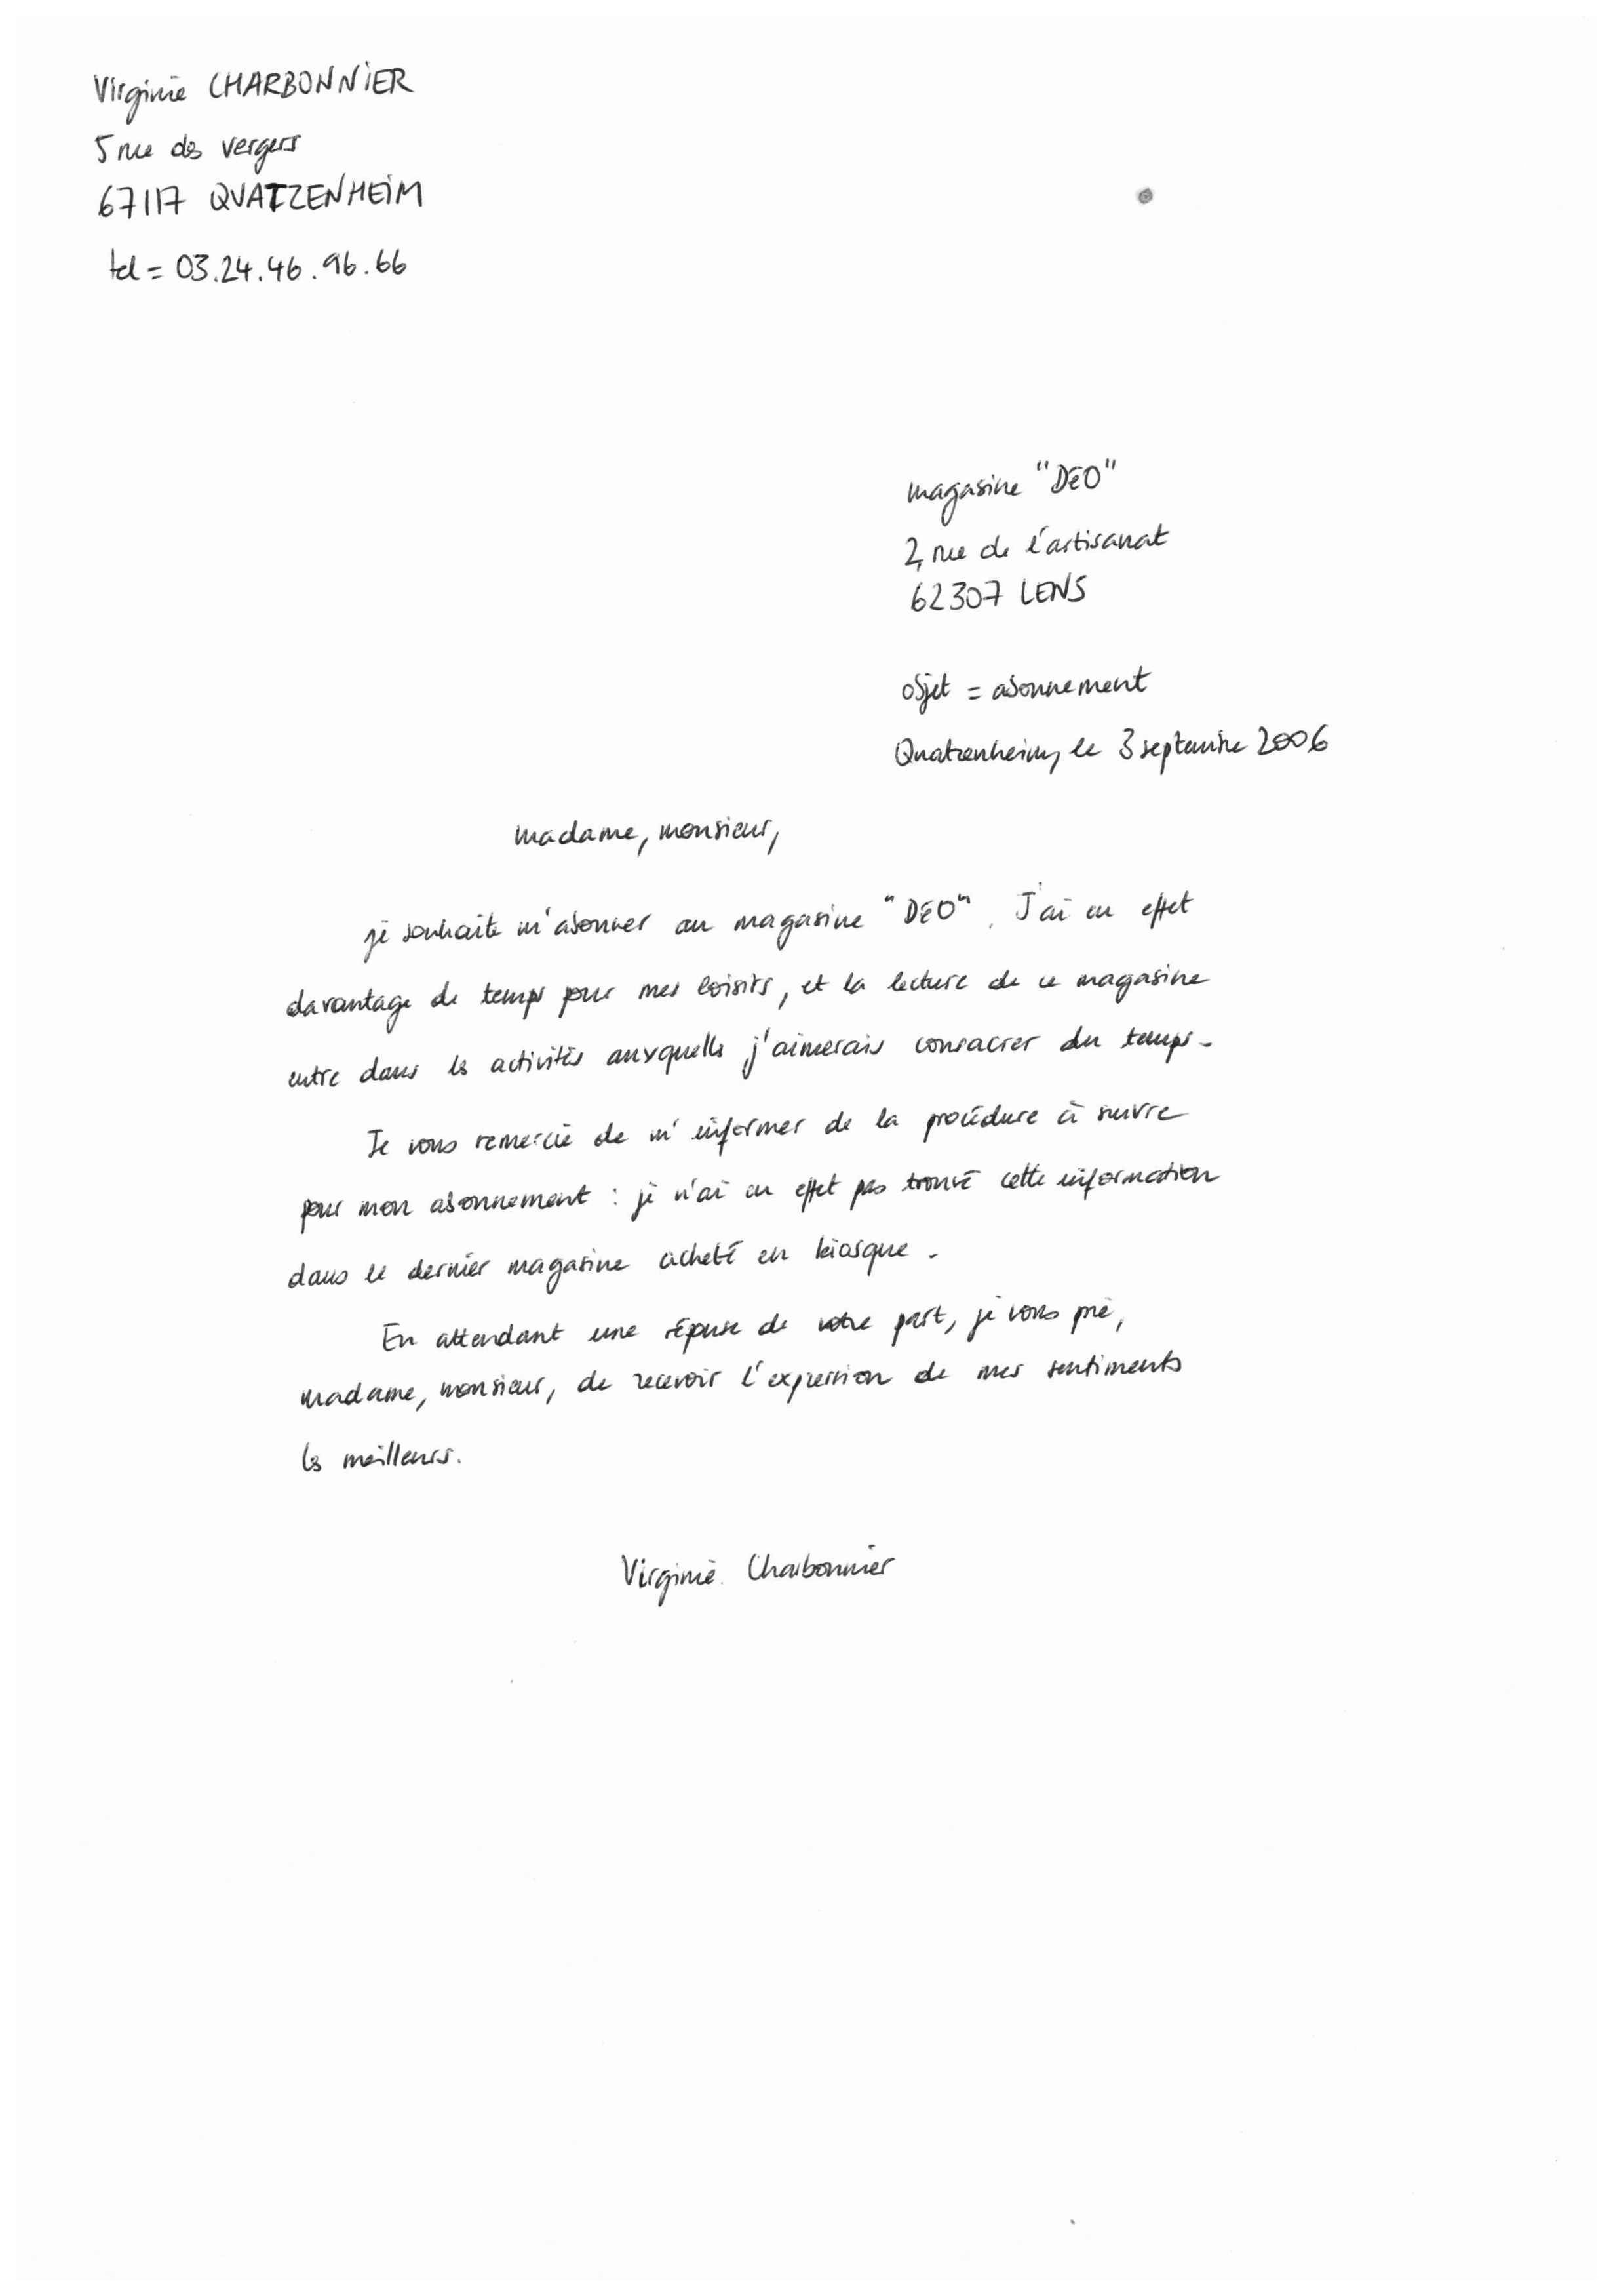 Virginie CHARBONNIER
5 rue des vergers
67117 QUATZENHEIM
tel = 03.24.46.96.66
magasine "DEO"
2, rue de l'artisanat
62307 LENS
objet = abonnement
Quatzenheim, le 3 septembre 2006
madame, monsieur,
je souhaite m'abonner au magasine "DEO". J'ai en effet
davantage de temps pour mes loisirs, et la lecture de ce magasine
entre dans les activités auxquelles j'aimerais consacrer du temps.
Je vous remercie de m'informer de la procédure à suivre
pour mon abonnement : je n'ai en effet pas trouvé cette information
dans le dernier magasine acheté en kiosque.
En attendant une réponse de votre part, je vous prie,
madame, monsieur, de recevoir l'expression de mes sentiments
les meilleurs.
Virginie Charbonnier